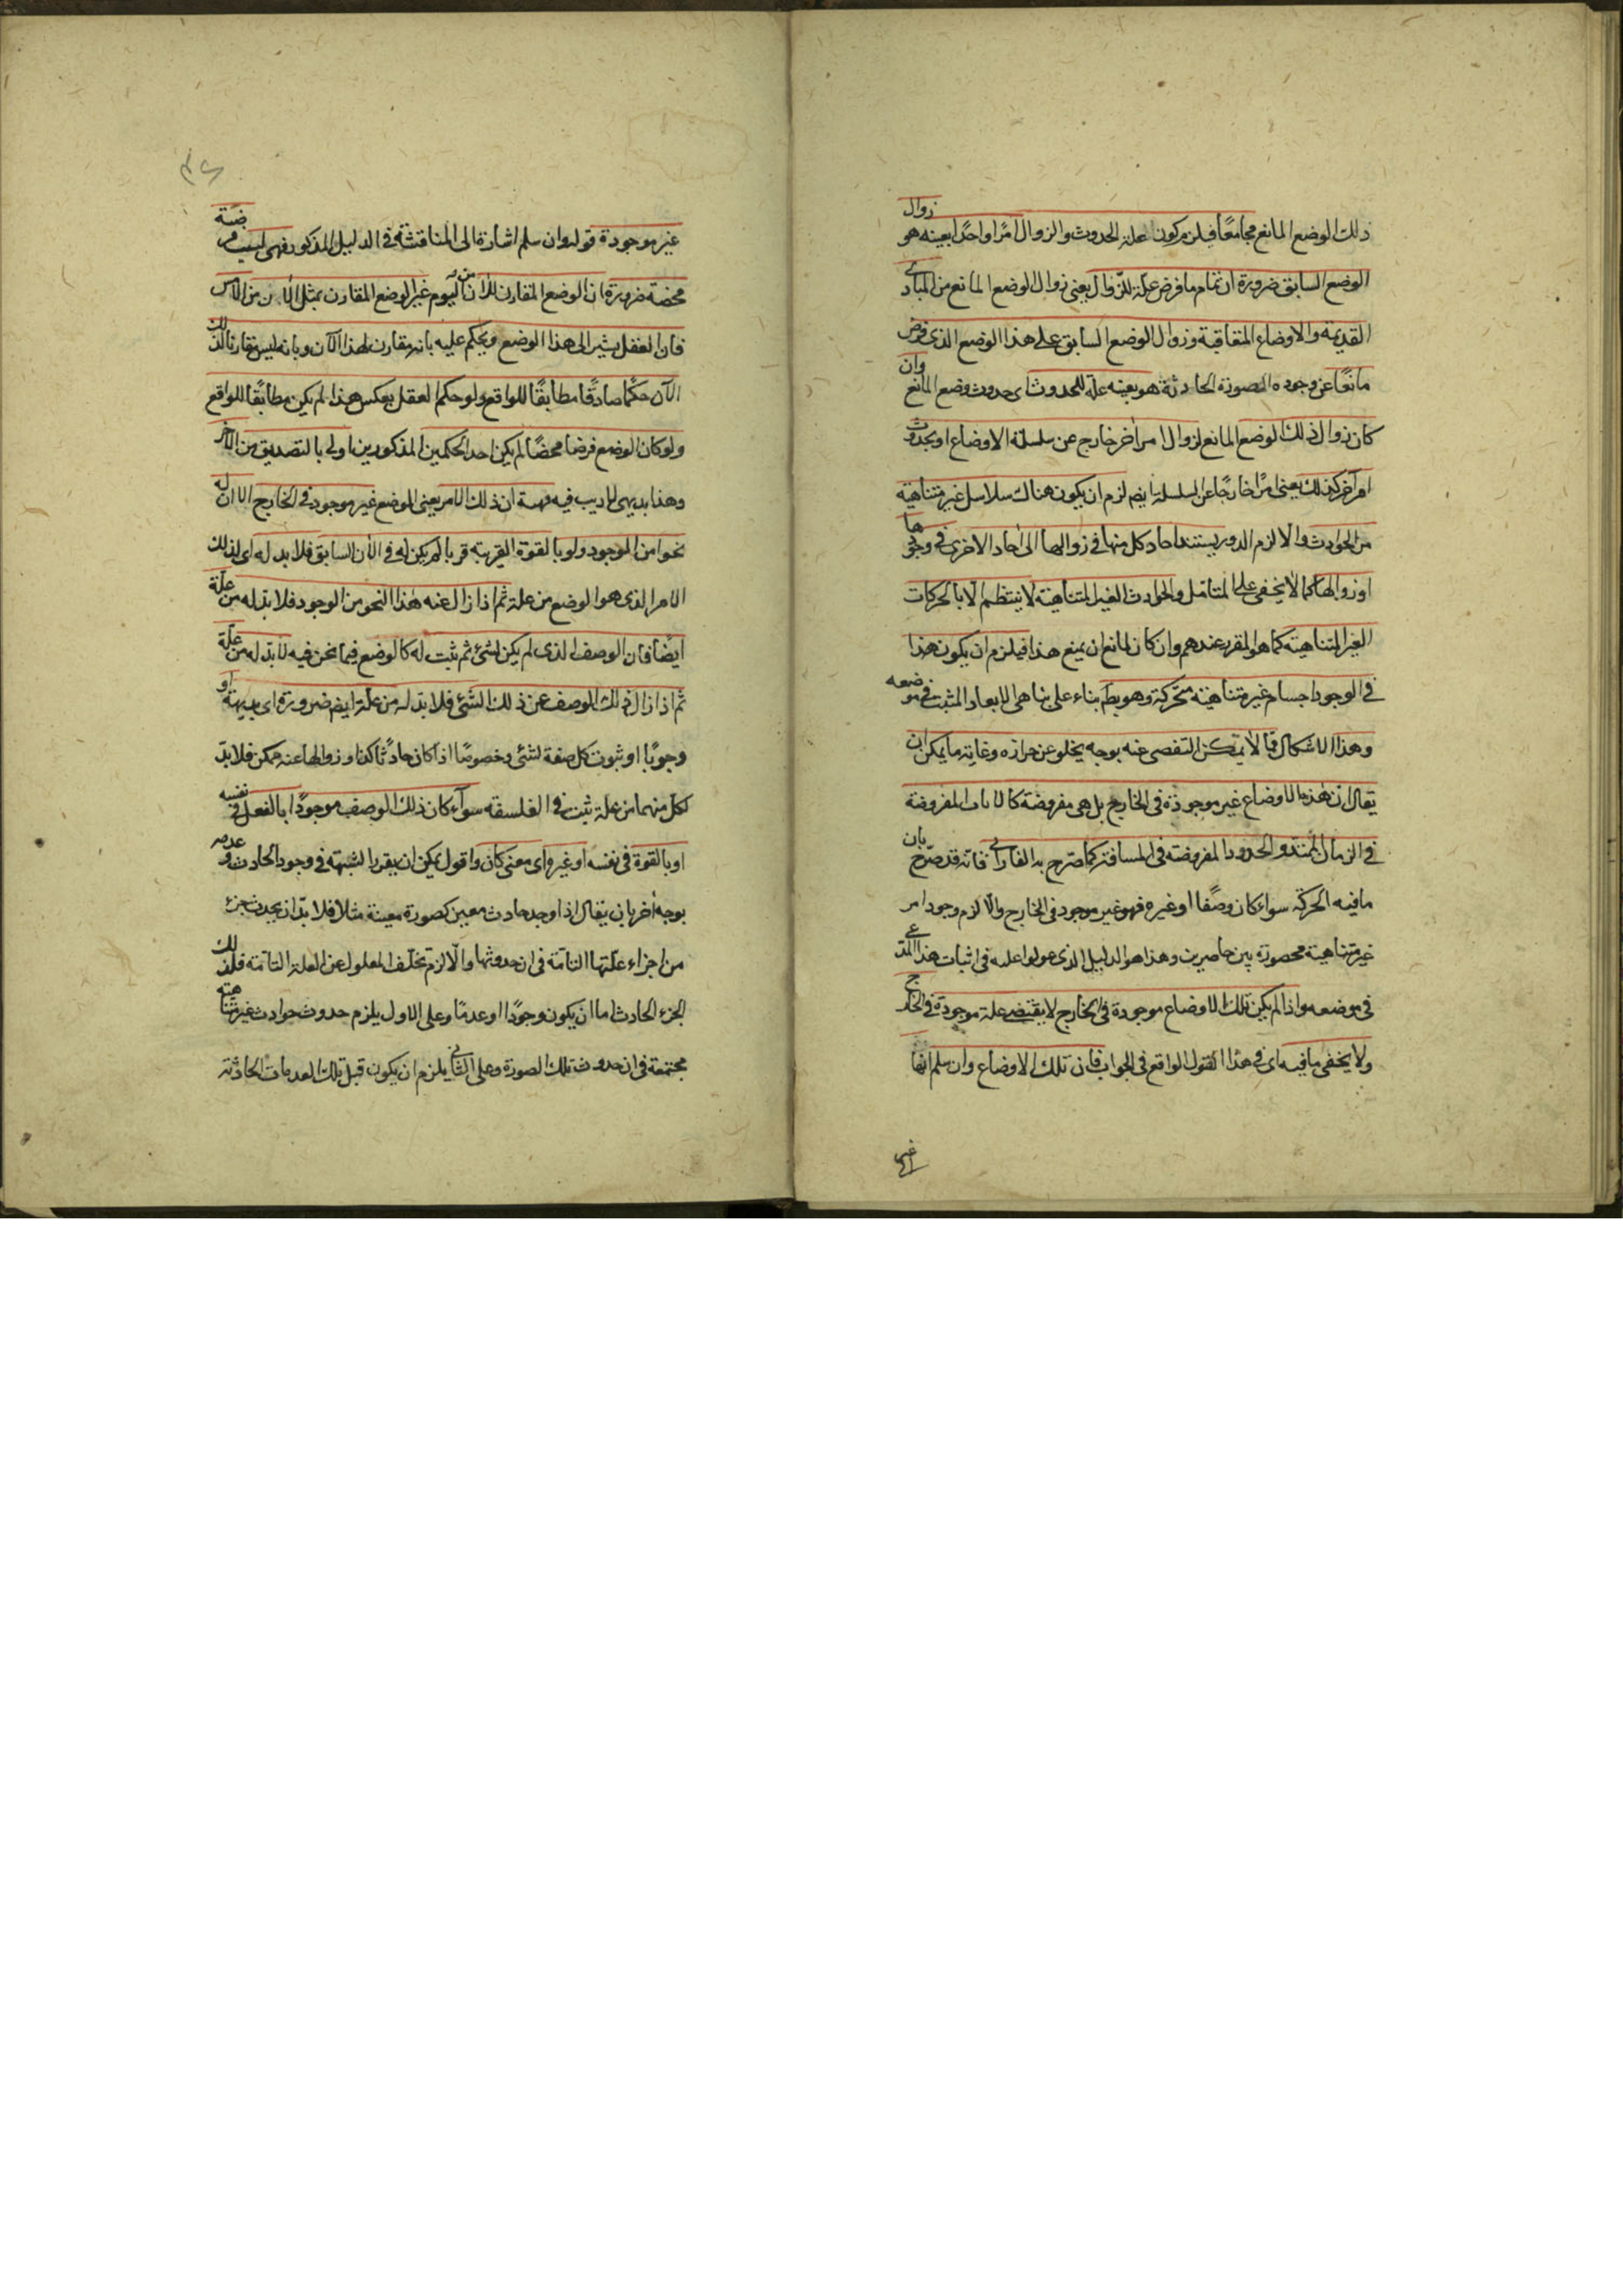 ذلك الوضع المانع مجامعًا فيلزم كون علة الحدوث والزوال امرًا واحدًا بعينه هو زوال
الوضع السابق ضرورة ان تمام ما فرض علة للزوال يعني زوال الوضع المانع من المبادي
القديمة والاوضاع المتعاقبة وزوال الوضع السابق على هذا الوضع الذي فرض
مانعًا عن وجود الصورة الحادثة هو بعينه علة للحدوث اي حدوث وضع المانع وان
كان زوال ذلك الوضع المانع لزوال امر اخر خارج عن سلسلة الاوضاع او بحدوث
امر آخر كذلك يعني امرًا خارجًا عن السلسلة ايضم لزم ان يكون هناك سلاسل غير متناهية
من الحوادث والا لزم الدور يستند احاد كل منها في زوالها الى احاد الاخرى في وجودها
او زوالها كما لا يخفى على المتامل والحوادث الغير المتناهية لا ينتظم الا بالحركات
الغير المتناهية كما هو المقرر عندهم وان كان لمانع ان يمنع هذا فيلزم ان يكون هذا
في الوجود اجسام غير متناهية متحركة وهو بط بناء على تناهي الابعاد المثبت في موضعه
وهذا الاشكال مما لا يمكن التفصي عنه بوجه يخلو عن حزازه وغاية ما يمكن ان
يقال ان هذه الاوضاع غير موجودة في الخارج بل هي مفروضة كالانات المفروضة
في الزمان الممتد والحدود المفروضة في المسافة كما صرح به الفارابي فانه قد صرح بان
ما فيه الحركة سواء كان وصفًا او غيره فهو غير موجود في الخارج والا لزم وجود امر
غير متناهية محصورة بين حاصرين وهذا هو الدليل الذي عولوا عليه في اثبات هذا المدعي
في موضعه واذا لم يكن تلك الاوضاع موجودة في الخارج لا يقتضى علة موجودة في الخارج
ولا يخفى ما فيه اي في هذا القول الواقع في الجواب فان تلك الاوضاع وان سلم انها
غير
غير موجودة قوله وان سلم اشارة الى المناقشة في الدليل المذكور فهي ليست فرضية
محضة ضرورة ان الوضع المقارن للان من اليوم غير الوضع المقارن بمثل الان من الامس
فان العقل يشير الى هذا الوضع ويحكم عليه بانه مقارن لهذا الآن وبانه ليس مقارنا لذلك
الآن حكمًا صادقًا مطابقًا للواقع ولو حكم العقل بعكس هذا لم يكن مطابقًا للواقع
ولو كان الوضع فرضا محضًا لم يكن احد الحكمين المذكورين اولى بالتصديق من الآخر
وهذا بديهي لا ريب فيه فهبه ان ذلك الامر يعني الوضع غير موجود في الخارج الا ان له
نحوا من الوجود ولو بالقوة القريبة قربا لم يكن له في الآن السابق فلا بد له اي لذلك
الامر الذي هو الوضع من علة ثم اذا زال عنه هذا النحو من الوجود فلا بد له من علة
ايضًا فان الوصف الذي لم يكن لشيء ثم ثبت له كالوضع فيما نحن فيه لا بد له من علة
ثم اذا زال ذلك الوصف عن ذلك الشيء فلا بد له من علة ايضم ضرورة اي بديهة او
وجوبًا او ثبوت كل صفة لشيء وخصوصًا اذا كان حادثًا كذا وزوالها عنه ممكن فلا بد
لكل منهما من علة ثبت في الفلسفة سواء كان ذلك الوصف موجودًا بالفعل في نفسه
او بالقوة في نفسه او غيره اي معنى كان واقول يمكن ان يقرر الشبهة في وجود الحادث وعدمه
بوجه آخر بان يقال اذا وجد حادث معين كصورة معينة مثلا فلا بد ان يحدث جزء
من اجزاء علتها التامة في ان حدوثها والا لزم تخلف المعلول عن العلة التامة فذلك
الجزء الحادث اما ان يكون وجودًا او عدمًا وعلى الاول يلزم حدوث حوادث غير متناهية
مجتمعة في ان حدوث تلك الصورة وعلى الثاني يلزم ان يكون قبل تلك العدمات الحادثة